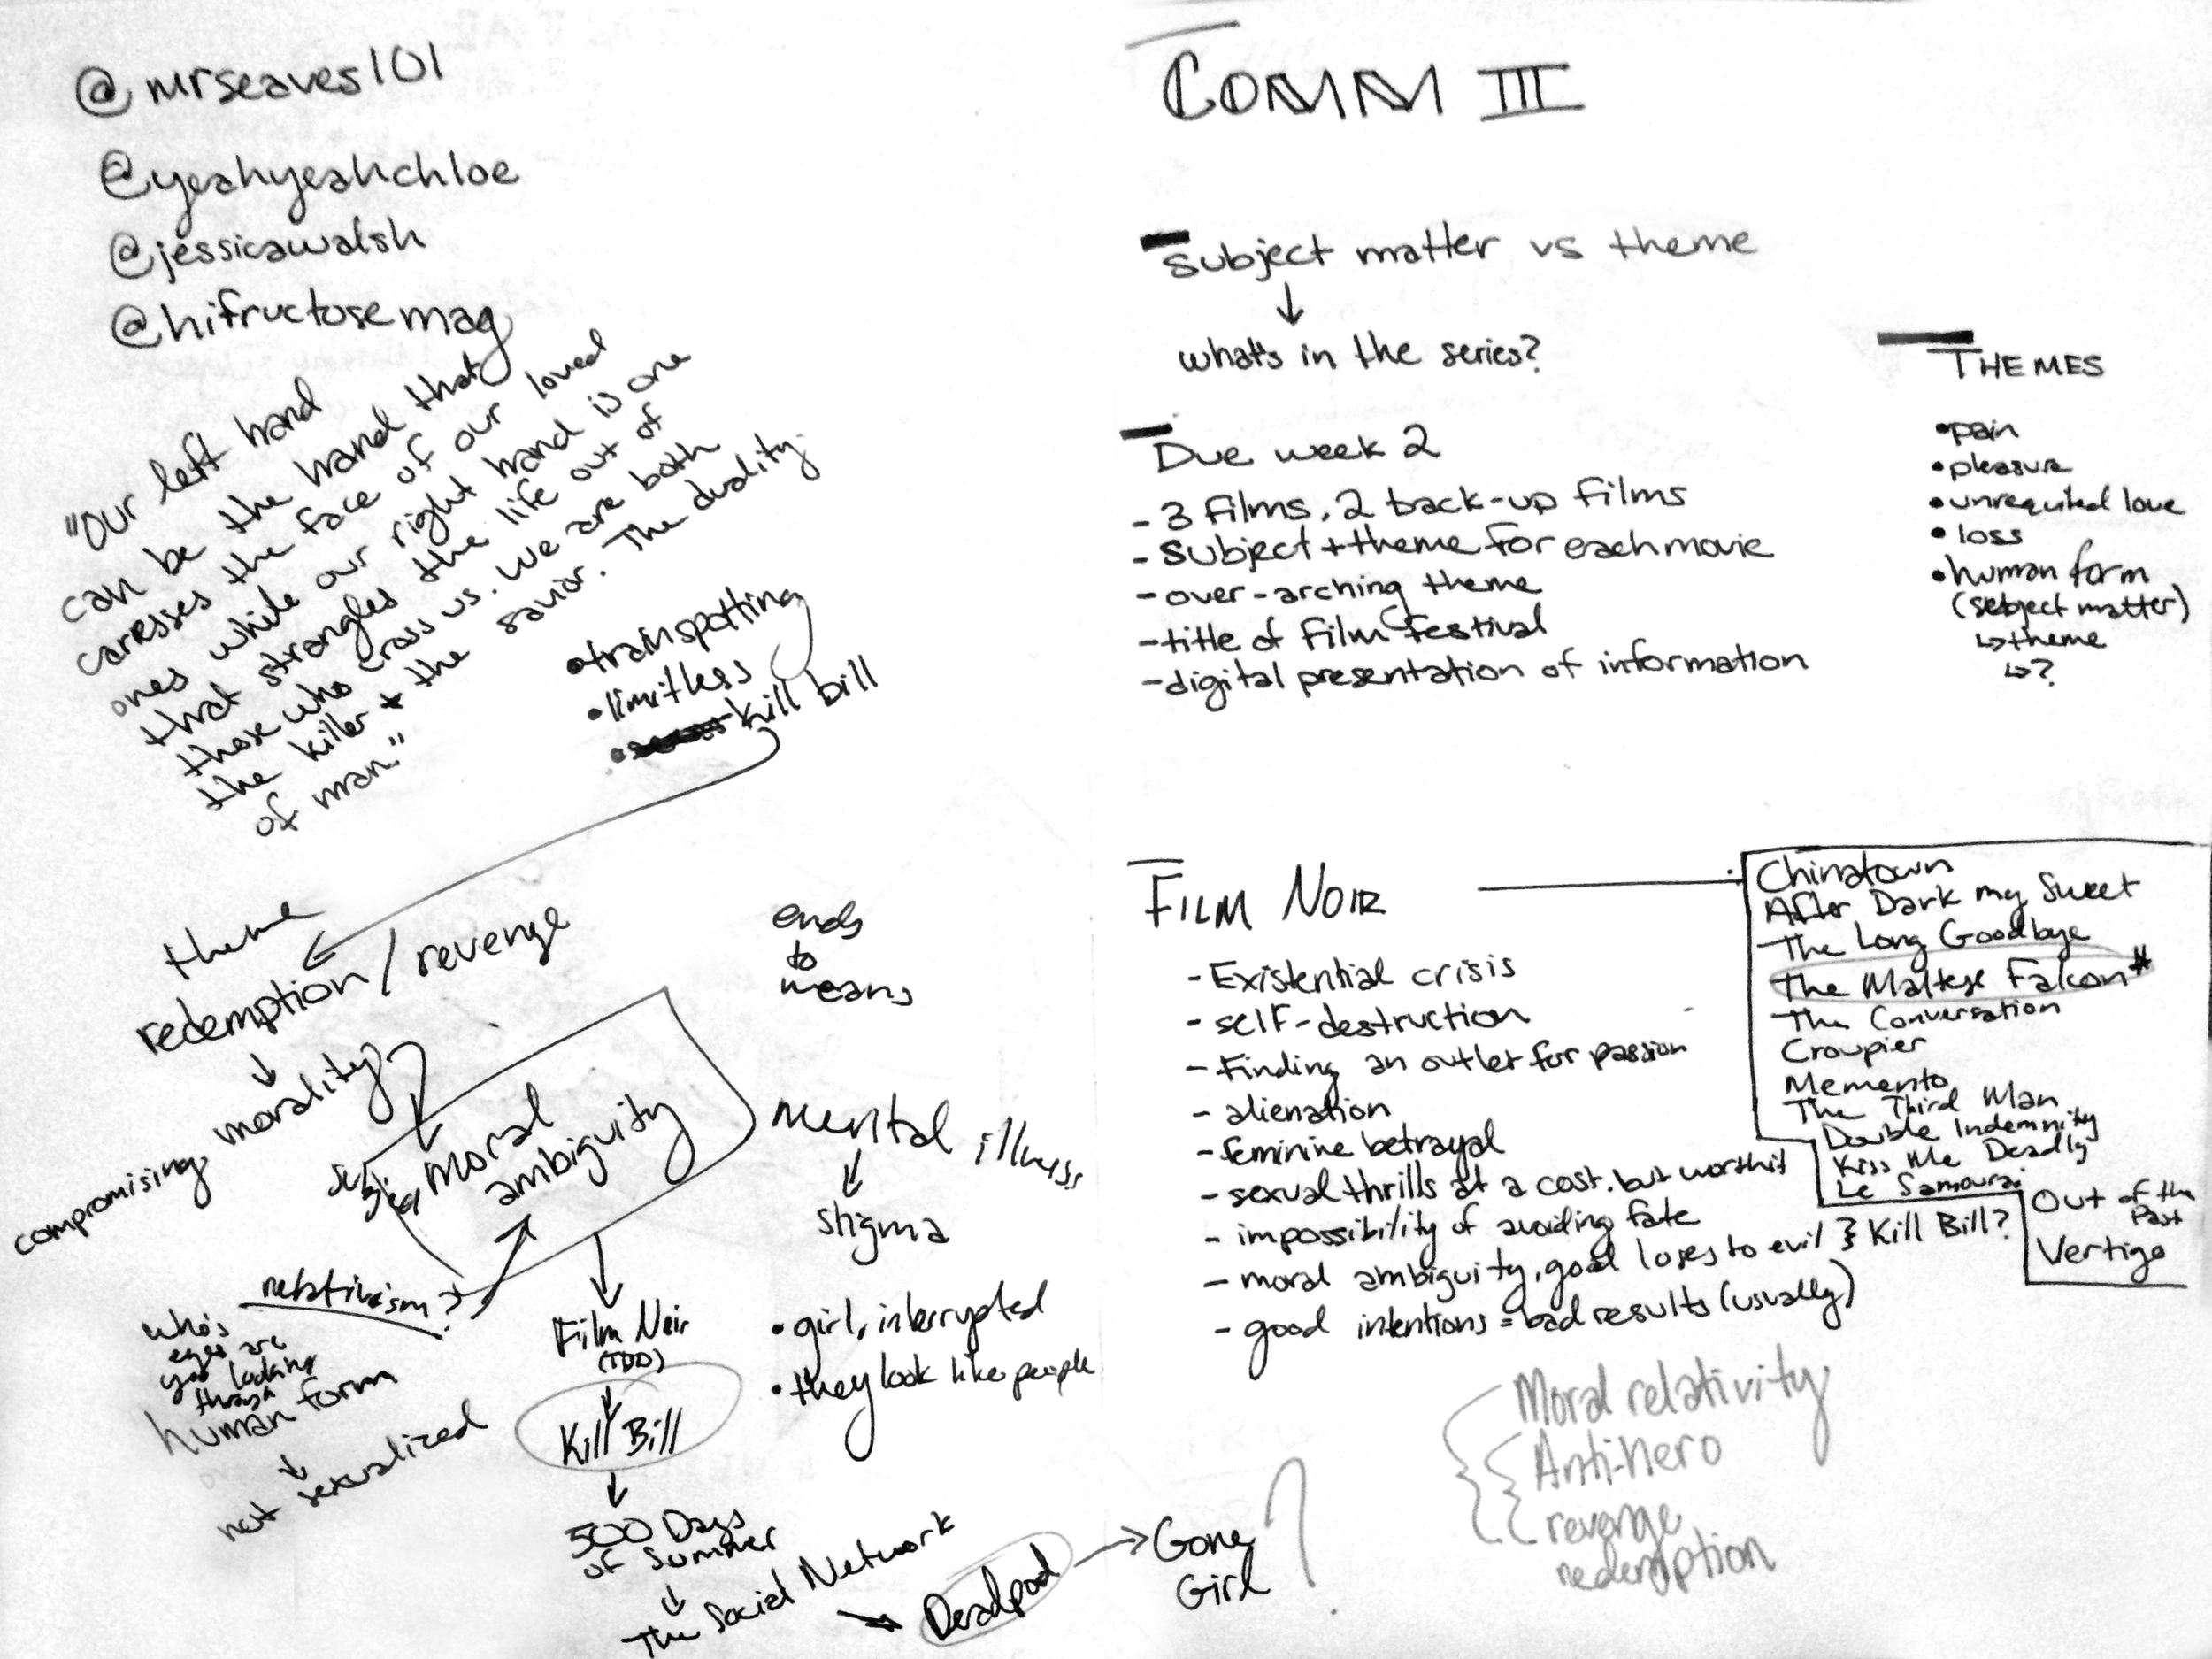 @mrseaves101
@yeahyeahchloe
@jessicawalsh
@hifructosemag
"our left hand
can be the hand that
caresses the face of our loved
ones while our right hand is one
that strangles the life out of
those who cross us. we are both
the killer + the savior. The duality
of man."
•trainspotting
•limitless
• kill bill
theme
redemption/revenge
↓
compromising morality
ends
to
means
moral
ambiguity
relativism?
who's
eyes are
you looking
through
human form
↓
not sexualized
Film Noir
(TDD)
↓
Kill Bill
↓
500 Days
of Summer
↓
The Social Network
→ Deadpool → Gone
Girl ?
mental illness
↓
stigma
•girl, interrupted
•they look like people
COMM III
subject matter vs theme
↓
what's in the series?
Due week 2
- 3 films, 2 back-up films
- subject + theme for each movie
- over-arching theme
- title of film festival
- digital presentation of information
THEMES
•pain
•pleasure
•unrequited love
•loss
•human form
(subject matter)
↳theme
↳?
FILM NOIR
- Existential crisis
- self-destruction
- Finding an outlet for passion
- alienation
- feminine betrayal
- sexual thrills at a cost, but worth it
- impossibility of avoiding fate
- moral ambiguity, good loses to evil } Kill Bill?
- good intentions = bad results (usually)
Chinatown
After Dark my Sweet
The Long Goodbye
The Maltese Falcon*
The Conversation
Croupier
Memento
The Third Man
Double Indemnity
Kiss Me Deadly
Le Samourai
Out of the
Past
Vertigo
Moral relativity
Anti-hero
revenge
redemption